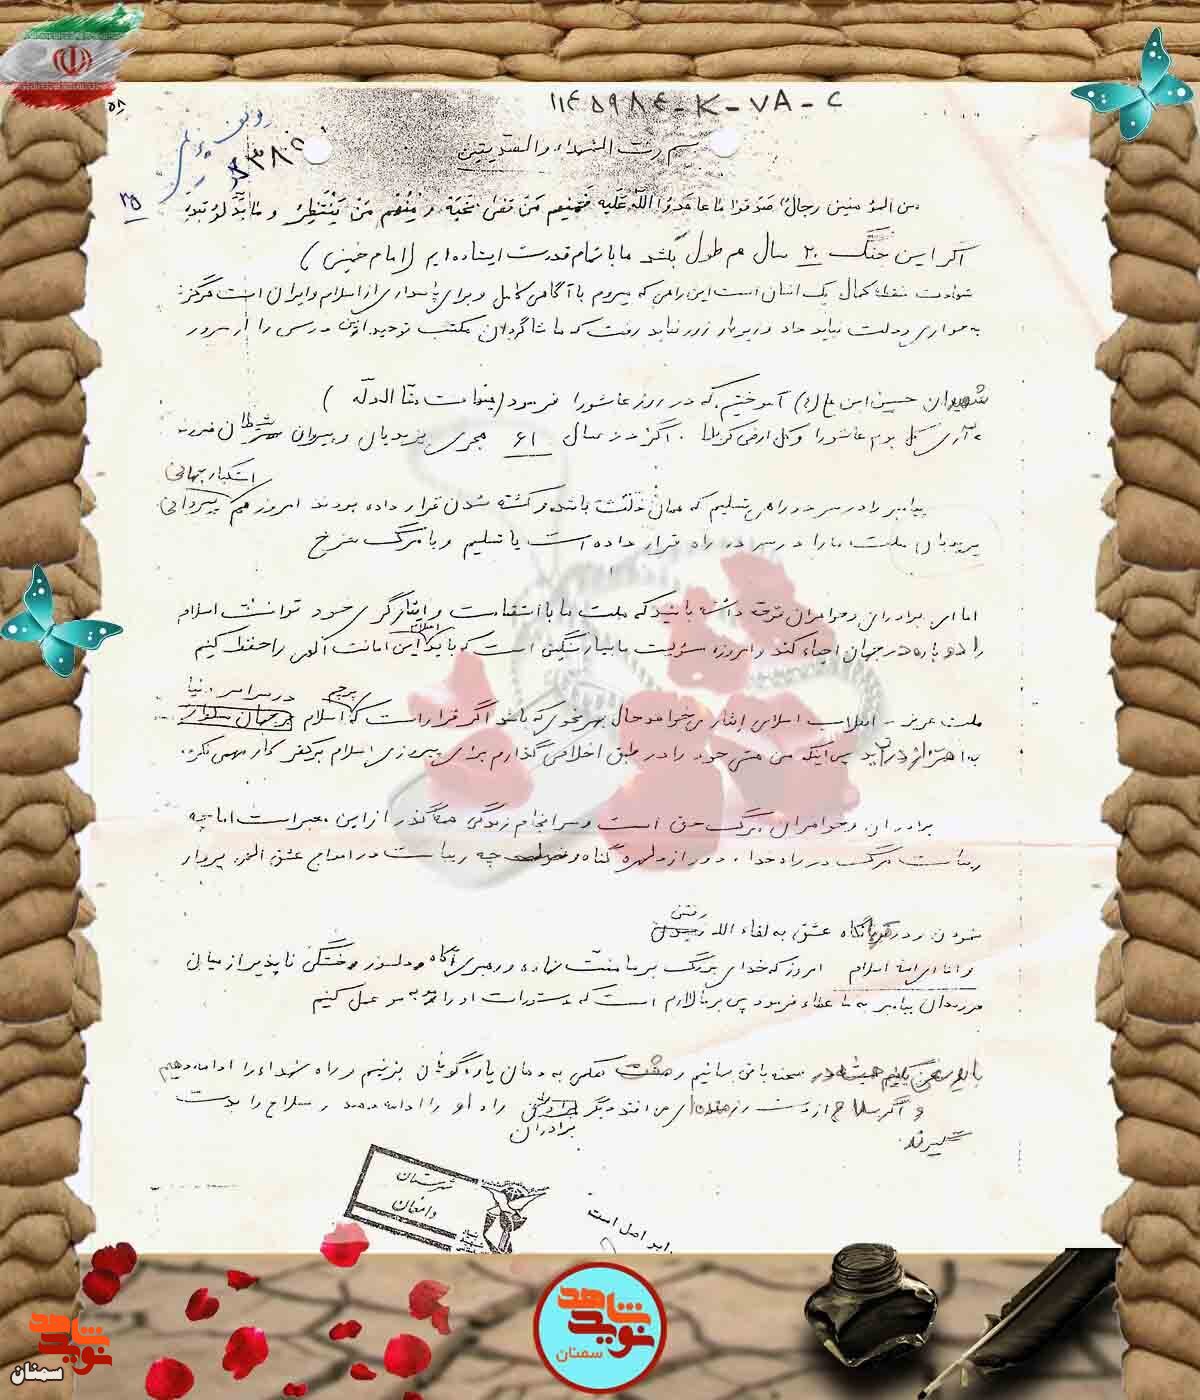 ۱۱۴۵۹۸۴-K-VA-C
۵۸
روئین
۳۸۰
۳۵
بسم رب الشهداء والصدیقین
من المؤمنین رجالٌ صَدَقوا ما عاهَدُوا اللهَ عَلَیه فَمِنهُم مَن قَضی نَحبَهُ وَ مِنهُم مَن یَنتَظِرُ و ما بَدَّلُو تبدیلا
اگر این جنگ ۲۰ سال هم طول بکشد ما با تمام قدرت ایستاده ایم (امام خمینی)
شهادت نقطه کمال یک انسان است این راهی که میروم با آگاهی کامل و برای پاسداری از اسلام و ایران است هرگز
به خواری و ذلت نباید داد و زیر بار زور نباید رفت که ما شاگردان مکتب توحید از این درس را از سرور
شهیدان حسین ابن علی (ع) آموختیم که در روز عاشورا فرمود (هیهات منا الذله)
آری کل یوم عاشورا و کل ارض کربلا . اگر در سال ۶۱ هجری یزیدیان و پیروان شیطان فرزند
پیامبر را در سر دو راهی تسلیم که همان ذلت باشد و کشته شدن قرار داده بودند امروز هم پیروان استکبار جهانی
یزیدیان ملت ما را در سر دو راه قرار داده است یا تسلیم و یا مرگ سرخ
اما ای برادران و خواهران توجه داشته باشید که ملت ما با استقامت و ایثارگری خود توانست اسلام
را دوباره در جهان احیاء کند و امروز مسئولیت ما بسیار سنگین است که باید این امانت الهی را حفظ کنیم
ملت عزیز - انقلاب اسلامی ایثار می خواهد حال بهر نحوی که باشد اگر قرار است که پرچم اسلام در سراسر دنیا
به اهتزاز در آید پس اینکه من هستی خود را در طبق اخلاص گذارم برای پیروزی اسلام بر کفر کار مهمی نکرده
برادران و خواهران مرگ حق است و سرانجام زندگی همه گذر از این معبر است اما چه
زیباست مرگ در راه خدا و دور از دلهره گناه و چه زیباست در امواج عشق الهی پرواز
نمودن و در قربانگاه عشق به لقاء الله رفتن
و اما ای امة اسلام امروز که خدای بزرگ بر ما منت نهاده و رهبری آگاه و دلسوز و خستگی ناپذیر از میان
فرزندان پیامبر به ما عطاء فرمود پس بر ما لازم است که دستورات او را مو به مو عمل کنیم
باید سعی کنیم همیشه در صحنه باقی بمانیم و مشت محکمی به دهان یاوه گویان بزنیم و راه شهداء را ادامه دهیم
و اگر سلاح از دست رزمنده ای می افتد دیگر برادران راه او را ادامه دهند و سلاح را بدست
گیرند.
برابر اصل است
شهرستان
دامغان
نوید شاهد
سمنان
نوید شاهد
سمنان